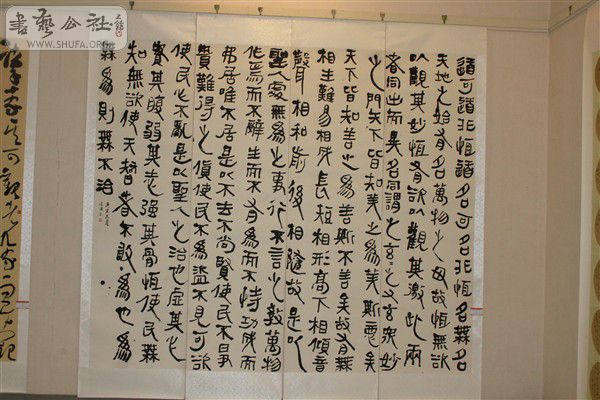 書藝公社
WWW.SHUFA.ORG
道可道非恒道名可名非恒名無名
天地之始有名萬物之母故恒無欲
以觀其妙恒有欲以觀其徼此兩
者同出而異名同謂之玄之又玄衆妙
之門天下皆知美之爲美斯惡矣
天下皆知善之爲善斯不善矣故有無
相生難易相成長短相形高下相傾音
聲相和前後相隨故是以
聖人處無爲之事行不言之教萬物
作焉而不辭生而不有爲而不恃功成而
弗居唯不居是以不去不尚賢使民不爭
貴難得之貨使民不爲盜不見可欲
使民心不亂是以聖人之治也虛其心
實其腹弱其志強其骨恒使民無
知無欲使夫智者不敢爲也爲
無爲則無不治